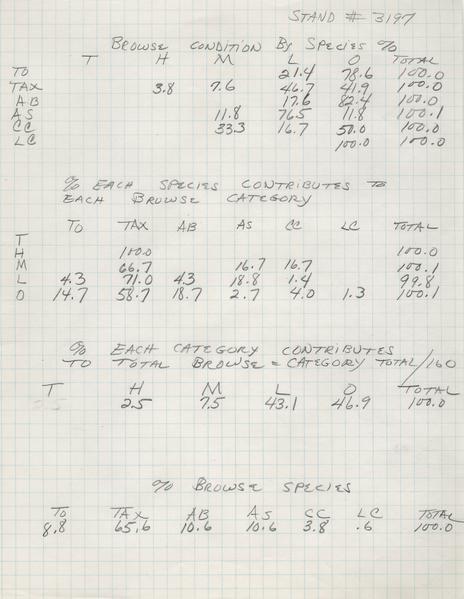 STAND # 3197
BROWSE CONDITION BY SPECIES %
T H M L O TOTAL
TO 21.4 78.6 100.0
TAX 3.8 7.6 46.7 41.9 100.0
AB 17.6 82.4 100.0
AS 11.8 76.5 11.8 100.1
CC 33.3 16.7 50.0 100.0
LC 100.0 100.0
% EACH SPECIES CONTRIBUTES TO
EACH BROWSE CATEGORY
TO TAX AB AS CC LC TOTAL
T
H 100.0 100.0
M 66.7 16.7 16.7 100.1
L 4.3 71.0 4.3 18.8 1.4 99.8
O 14.7 58.7 18.7 2.7 4.0 1.3 100.1
% EACH CATEGORY CONTRIBUTES
TO TOTAL BROWSE = CATEGORY TOTAL/160
T H M L O TOTAL
2.5 7.5 43.1 46.9 100.0
% BROWSE SPECIES
TO TAX AB AS CC LC TOTAL
8.8 65.6 10.6 10.6 3.8 .6 100.0